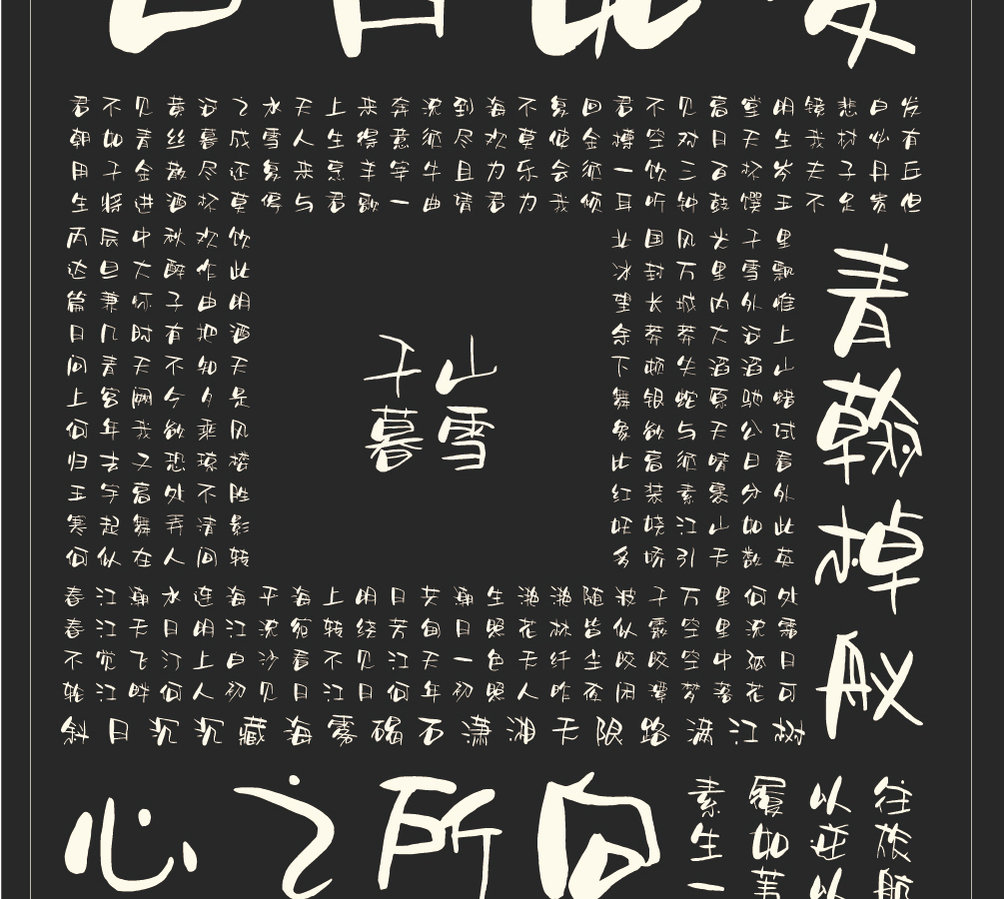 君不见黄河之水天上来奔流到海不复回君不见高堂明镜悲白发
朝如青丝暮成雪人生得意须尽欢莫使金樽空对月天生我材必有
用千金散尽还复来烹羊宰牛且为乐会须一饮三百杯岑夫子丹丘
生将进酒杯莫停与君歌一曲请君为我倾耳听钟鼓馔玉不足贵但
丙辰中秋欢饮
达旦大醉作此
篇兼怀子由明
月几时有把酒
问青天不知天
上宫阙今夕是
何年我欲乘风
归去又恐琼楼
玉宇高处不胜
寒起舞弄清影
何似在人间转
千山
暮雪
北国风光千里
冰封万里雪飘
望长城内外惟
余莽莽大河上
下顿失滔滔山
舞银蛇原驰蜡
象欲与天公试
比高须晴日看
红装素裹分外
妖娆江山如此
多娇引无数英
青翰棹舣
春江潮水连海平海上明月共潮生滟滟随波千万里何处
春江无月明江流宛转绕芳甸月照花林皆似霰空里流霜
不觉飞汀上白沙看不见江天一色无纤尘皎皎空中孤月
轮江畔何人初见月江月何年初照人昨夜闲潭梦落花可
斜月沉沉藏海雾碣石潇湘无限路满江树
心之所向
素履以往
生如逆旅
一苇以航